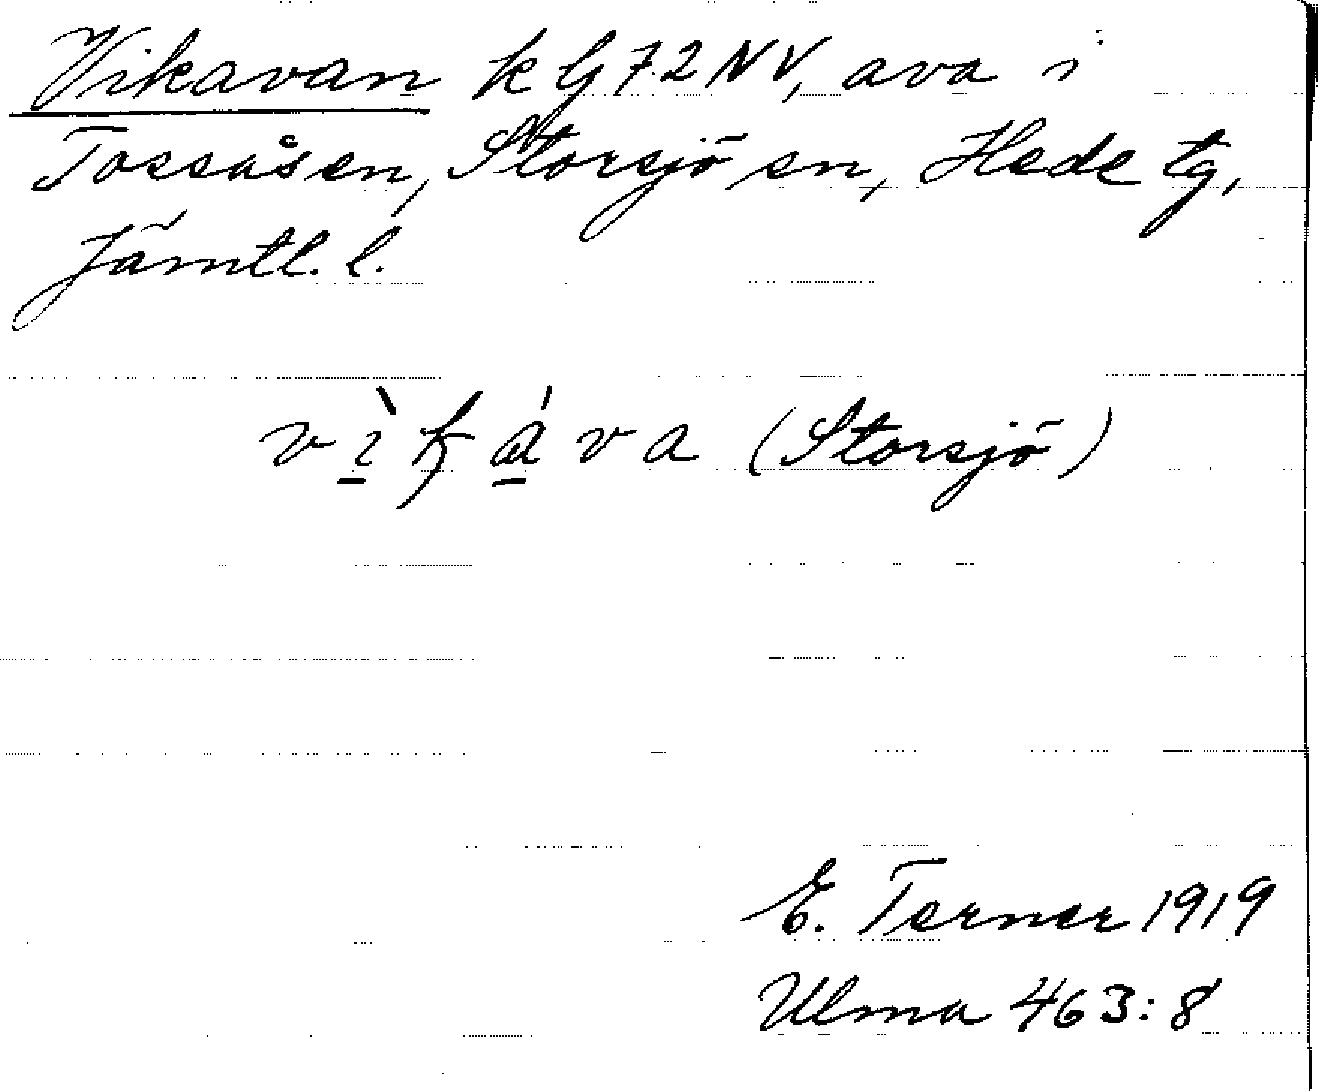 Vikavan k G 72 NV, ava i
Tossåsen, Storsjö sn, Hede tg,
Jämtl. l.
vìkáva (Storsjö)
E. Terner 1919
Ulma 463:8